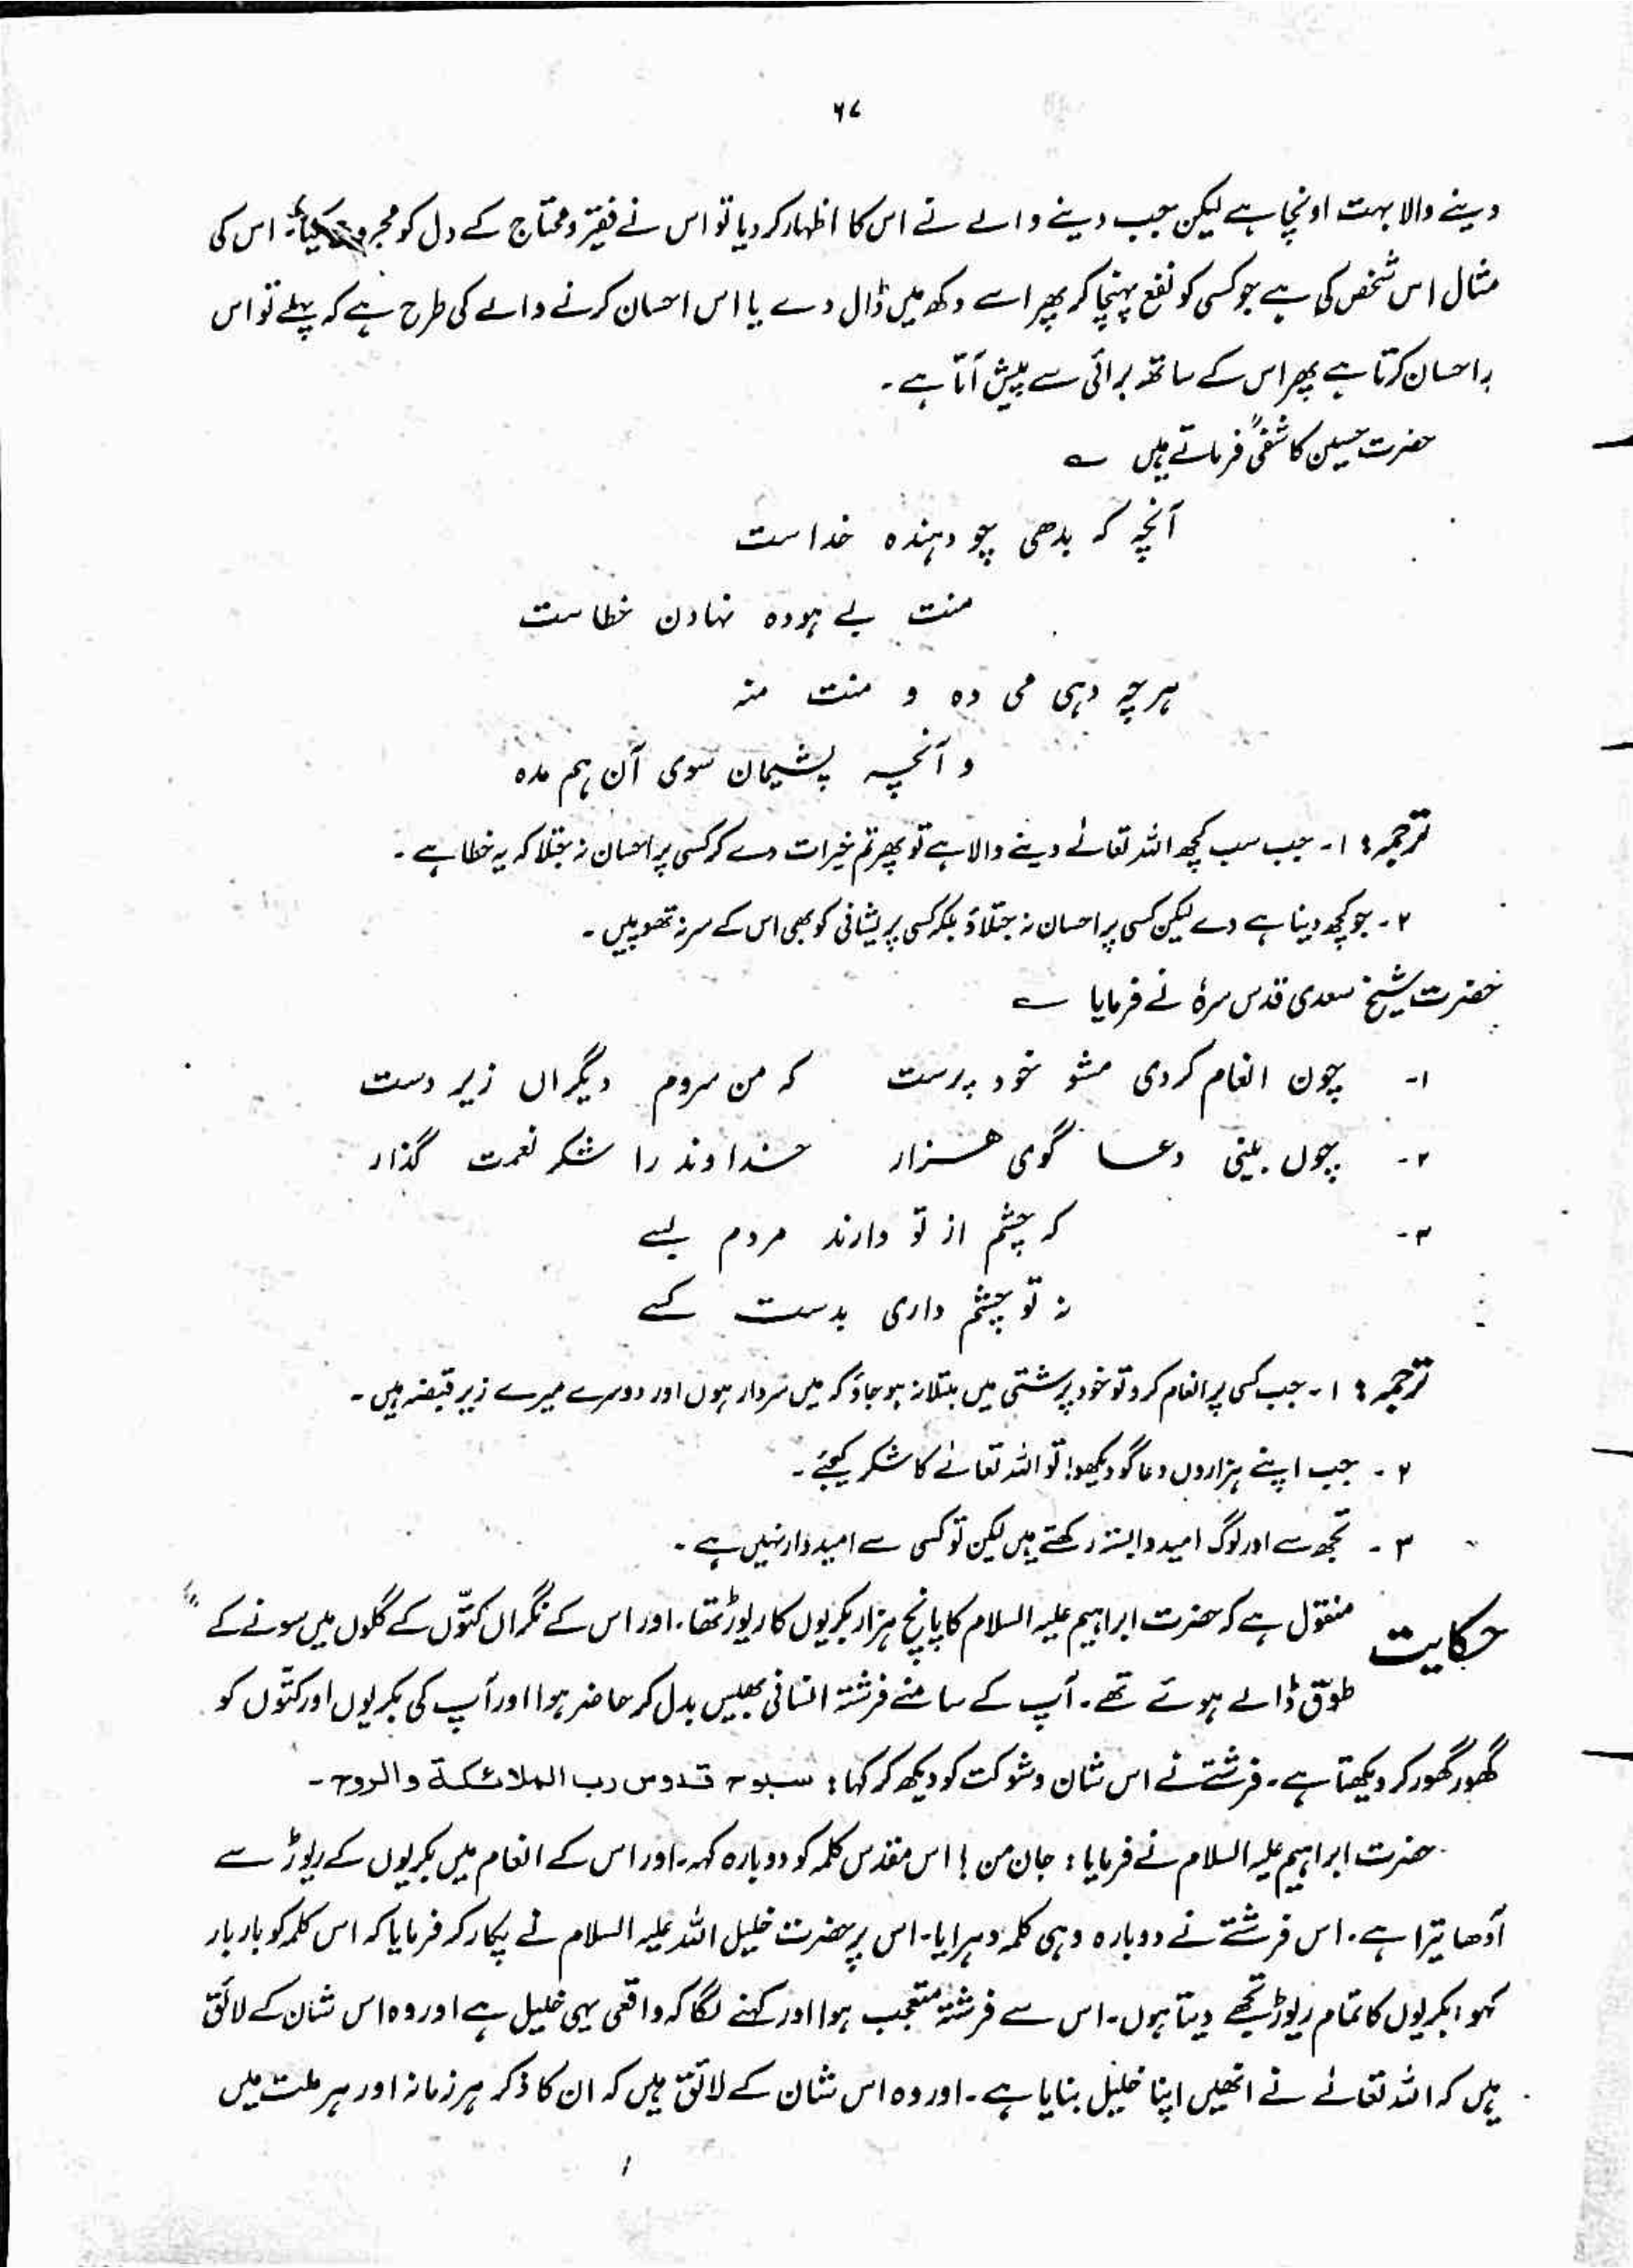 ۶۷
دینے والا بہت اونچا ہے لیکن جب دینے والے نے اس کا اظہار کر دیا تو اس نے فقیر و محتاج کے دل کو مجروح کیا۔ اس کی
مثال اس شخص کی ہے جو کسی کو نفع پہنچا کر پھر اسے دکھ میں ڈال دے یا اس احسان کرنے والے کی طرح ہے کہ پہلے تو اس
پر احسان کرتا ہے پھر اس کے ساتھ برائی سے پیش آتا ہے۔
حضرت حسین کاشفیؒ فرماتے ہیں ؎
آنچہ کہ بدھی چو دہندہ خداست
منت بے ہودہ نہادن خطاست
ہر چہ دہی می دہ و منت منہ
و آنچہ پشیمان سوی آن ہم مدہ
ترجمہ: ۱۔ جب سب کچھ اللہ تعالےٰ دینے والا ہے تو پھر تم خیرات دے کر کسی پر احسان نہ جتلا کہ یہ خطا ہے۔
۲۔ جو کچھ دینا ہے دے لیکن کسی پر احسان نہ جتلاؤ بلکہ کسی پریشانی کو بھی اس کے سر نہ تھوپیں۔
حضرت شیخ سعدی قدس سرہٗ نے فرمایا ؎
۱۔ چون انعام کردی مشو خود پرست کہ من سروم دیگراں زیر دست
۲۔ چوں بینی دعا گوی ھزار خداوند را شکر نعمت گذار
۳۔ کہ چشم از تو دارند مردم بسے
نہ تو چشم داری بدست کسے
ترجمہ: ۱۔ جب کسی پر انعام کرو تو خود پرستی میں مبتلا نہ ہو جاؤ کہ میں سردار ہوں اور دوسرے میرے زیر قبضہ ہیں۔
۲۔ جب اپنے ہزاروں دعا گو دیکھو! تو اللہ تعالےٰ کا شکر کیجئے۔
۳۔ تجھ سے اور لوگ امید وابستہ رکھتے ہیں لیکن تو کسی سے امیدوار نہیں ہے۔
حکایت منقول ہے کہ حضرت ابراہیم علیہ السلام کا پانچ ہزار بکریوں کا ریوڑ تھا۔ اور اس کے نگراں کتّوں کے گلوں میں سونے کے
طوق ڈالے ہوئے تھے۔ آپ کے سامنے فرشتہ انسانی بھیس بدل کر حاضر ہوا اور آپ کی بکریوں اور کتّوں کو
گھور گھور کر دیکھتا ہے۔ فرشتے نے اس شان و شوکت کو دیکھ کر کہا: سبوح قدوس رب الملائکة والروح۔
حضرت ابراہیم علیہ السلام نے فرمایا: جان من! اس مقدس کلمہ کو دوبارہ کہہ۔ اور اس کے انعام میں بکریوں کے ریوڑ سے
آدھا تیرا ہے۔ اس فرشتے نے دوبارہ وہی کلمہ دہرایا۔ اس پر حضرت خلیل اللہ علیہ السلام نے پکار کر فرمایا کہ اس کلمہ کو بار بار
کہو، بکریوں کا تمام ریوڑ تجھے دیتا ہوں۔ اس سے فرشتہ متعجب ہوا اور کہنے لگا کہ واقعی یہی خلیل ہے اور وہ اس شان کے لائق
ہیں کہ اللہ تعالےٰ نے انھیں اپنا خلیل بنایا ہے۔ اور وہ اس شان کے لائق ہیں کہ ان کا ذکر ہر زمانہ اور ہر ملت میں